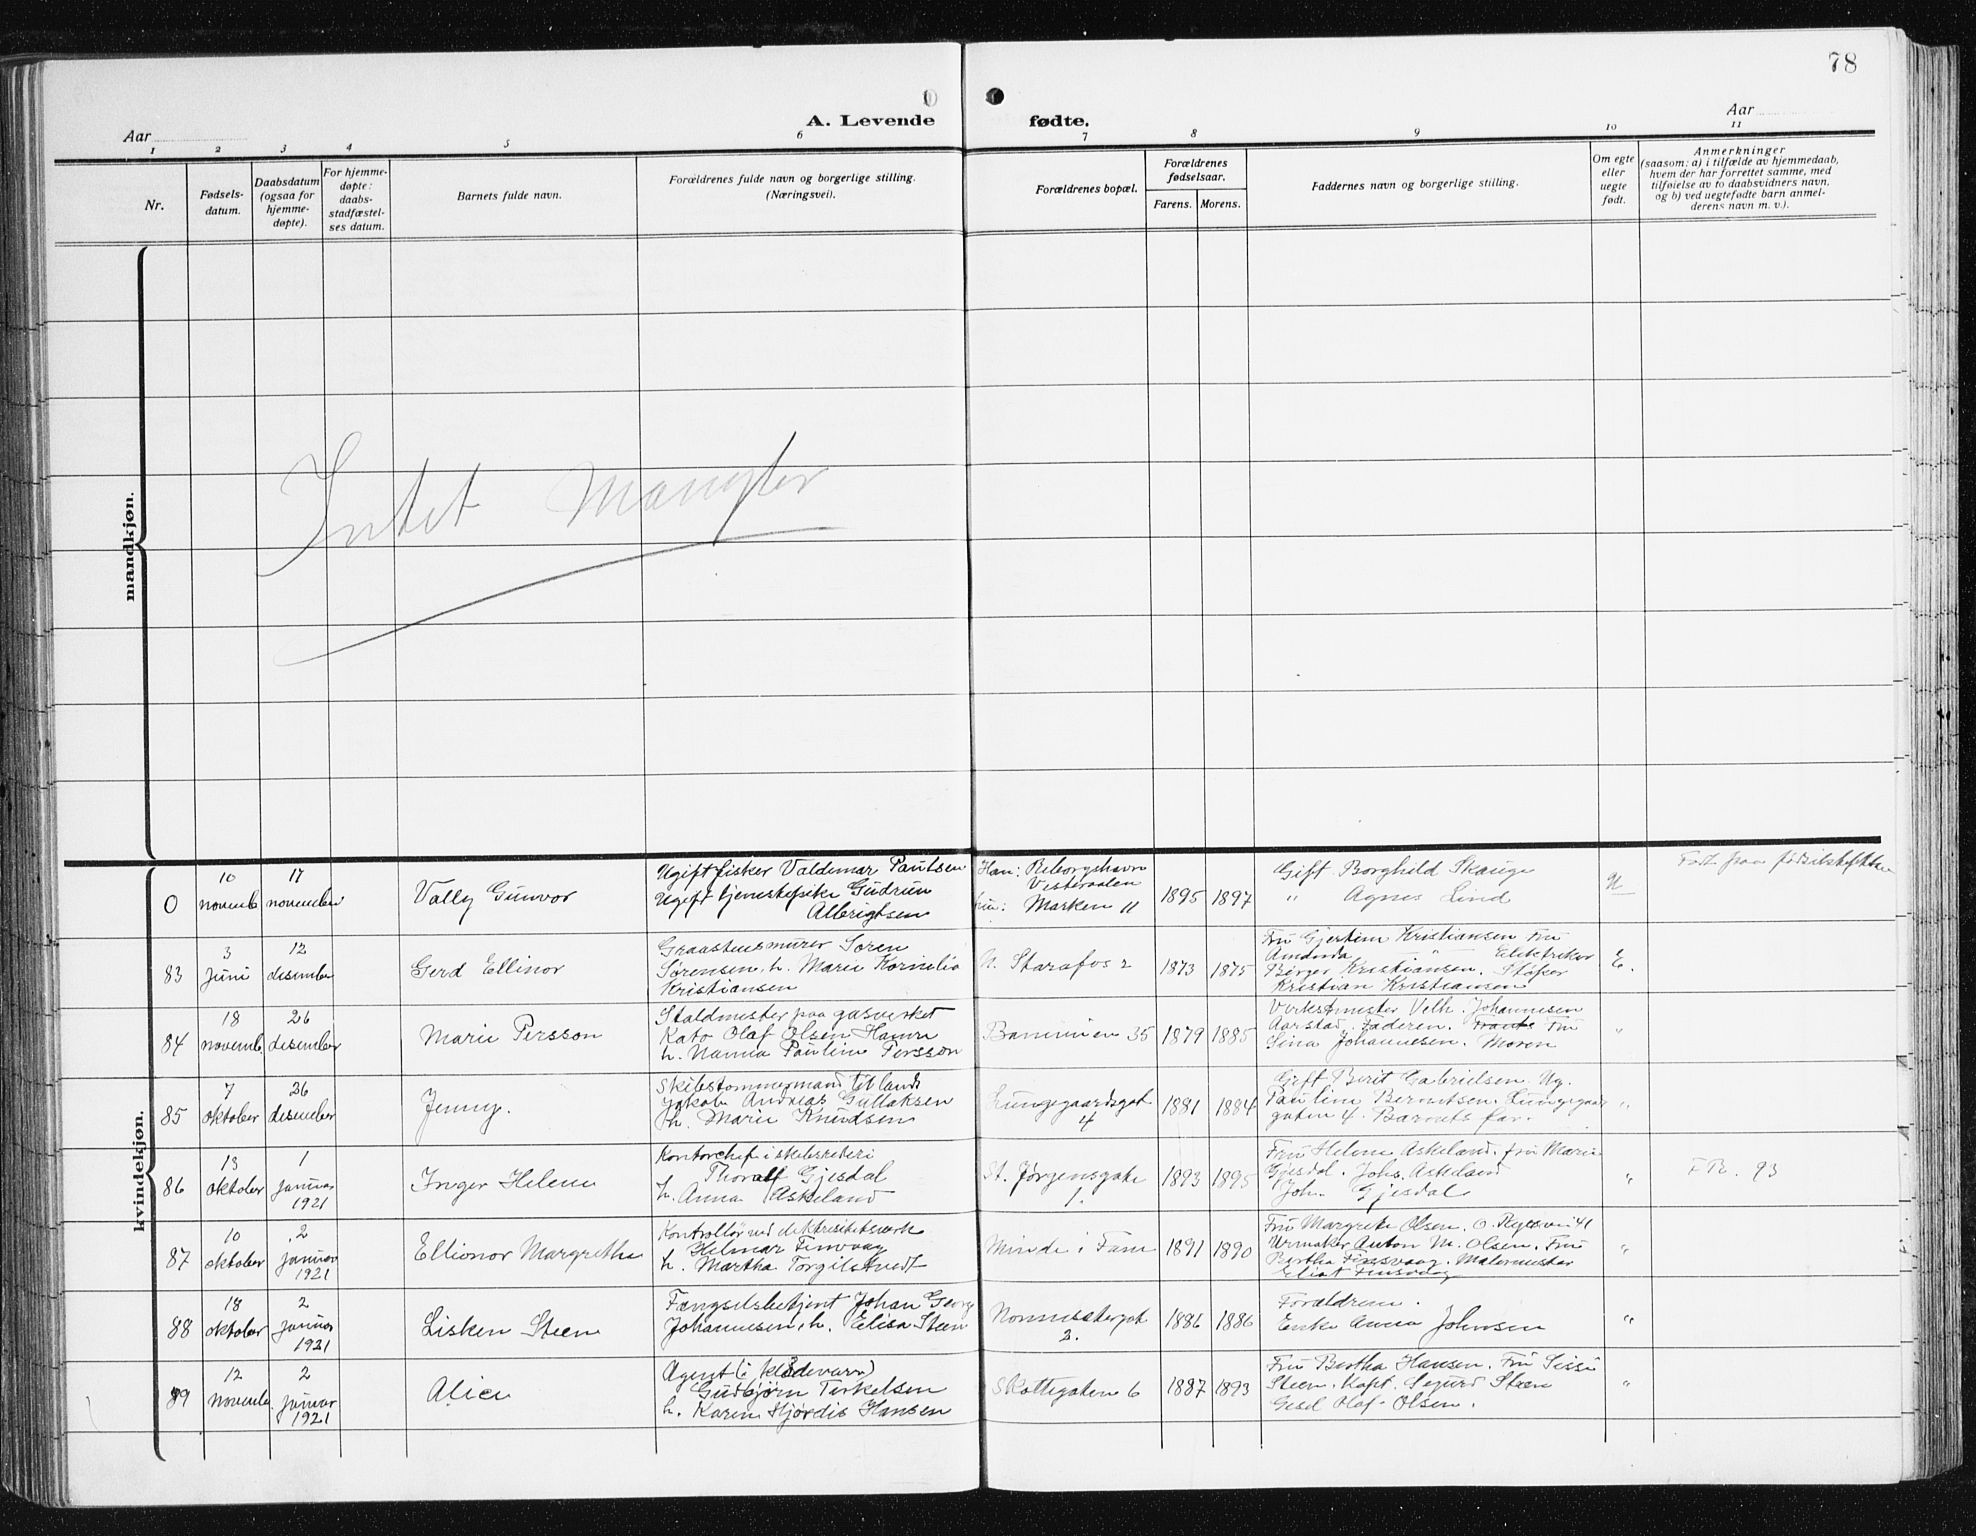 78
Aar
A. Levende fødte.
Aar
1 2 3 4 5 6 7 8 9 10 11
Nr.
Fødsels-
datum.
Daabsdatum
(ogsaa for
hjemme-
døpte).
For hjemme-
døpte:
daabs-
stadfæstel-
ses datum.
Barnets fulde navn.
Forældrenes fulde navn og borgerlige stilling.
(Næringsvei).
Forældrenes bopæl.
Forældrenes
fødselsaar.
Farens. Morens.
Faddernes navn og borgerlige stilling.
Om egte
eller
uegte
født.
Anmerkninger
(saasom: a) i tilfælde av hjemmedaab,
hvem der har forrettet samme, med
tilføielse av to daabsvidners navn,
og b) ved uegtefødte barn anmel-
derens navn m. v.).
mandkjøn.
Intet Mangler
kvindekjøn.
0
10
novemb
17
november
Vally Gunvor
Ugift fisker Valdemar Paulsen
Ugift tjenestepike Gudrun
Albrigtsen
Han: Reborgshavn
Vesteraalen
hun: Marken 11
1895 1897
Gift Borghild Skauge
" Agnes Lind
U
83
3
Juni
12
desember
Gerd Ellinor
Graastensmurer Søren
Sørensen, h. Marie Kornelia
Kristiansen
N. Starefos 2
1873 1875
Fru Gjertine Kristiansen Fru
Amanda " Elektriker
Birger Kristiansen. Støper
Kristian Kristiansen
E.
84
18
novemb.
26
desember
Marie Persson
Staldmester paa gasverket
Kato Olaf Olsen Hamre
h. Nanna Pauline Persson
35
1879 1885
Verksmester Velh. Johannesen
Aarstad. Faderen. Fru
Sina Johannesen. Moren
"
85
7
oktober
26
desember
Jenny.
Skibstømmermand til lands
Jakob Andreas Gullaksen
h. Marie Knudsen
Lungegaardsgat
4
1881 1884
Gift Berit Gabrielsen. Ug.
Pauline Berntsen. Lungegaar
gaten 4. Barnets far.
"
86
13
oktober
1
januar
1921
Inger Helene
Kontorchef i skibsrederi
Thoralf Gjesdal
h. Anna Askeland
St. Jørgensgate
1.
1893 1895
Fru Helene Askeland. fru Marie
Gjesdal. Johs. Askeland
Joh. Gjesdal
"
F.R. 93
87
10
oktober
2
januar
1921
Ellionor Margrethe
Kontrollør ved elektrisitetsverk
Helmar Finsvaag
h. Martha Torgilstvedt
Minde i Fane
1891 1890
Fru Margrete Olsen. 41
Urmaker Anton M. Olsen. Fru
Bertha Finsvaag. Malermester
Eliot Finsvaag
"
88
18
oktober
2
januar
1921
Lisken Steen
Fængselsbetjent Johan Georg
Johannesen, h. Elisa Steen
Nonnestergat
2.
1886 1886
Forældrene.
Enke Anna Johnsen
"
89
12
novemb.
2
januar
1921
Alice
Agent (i klædevarer)
Gudbjørn Terkelsen
h. Karen Hjørdis Hansen
Skottegaten 6
1887 1893
Fru Bertha Hansen. Fru Sissi
Steen. Kapt. Sigurd Steen
Gesel Olaf Olsen.
"